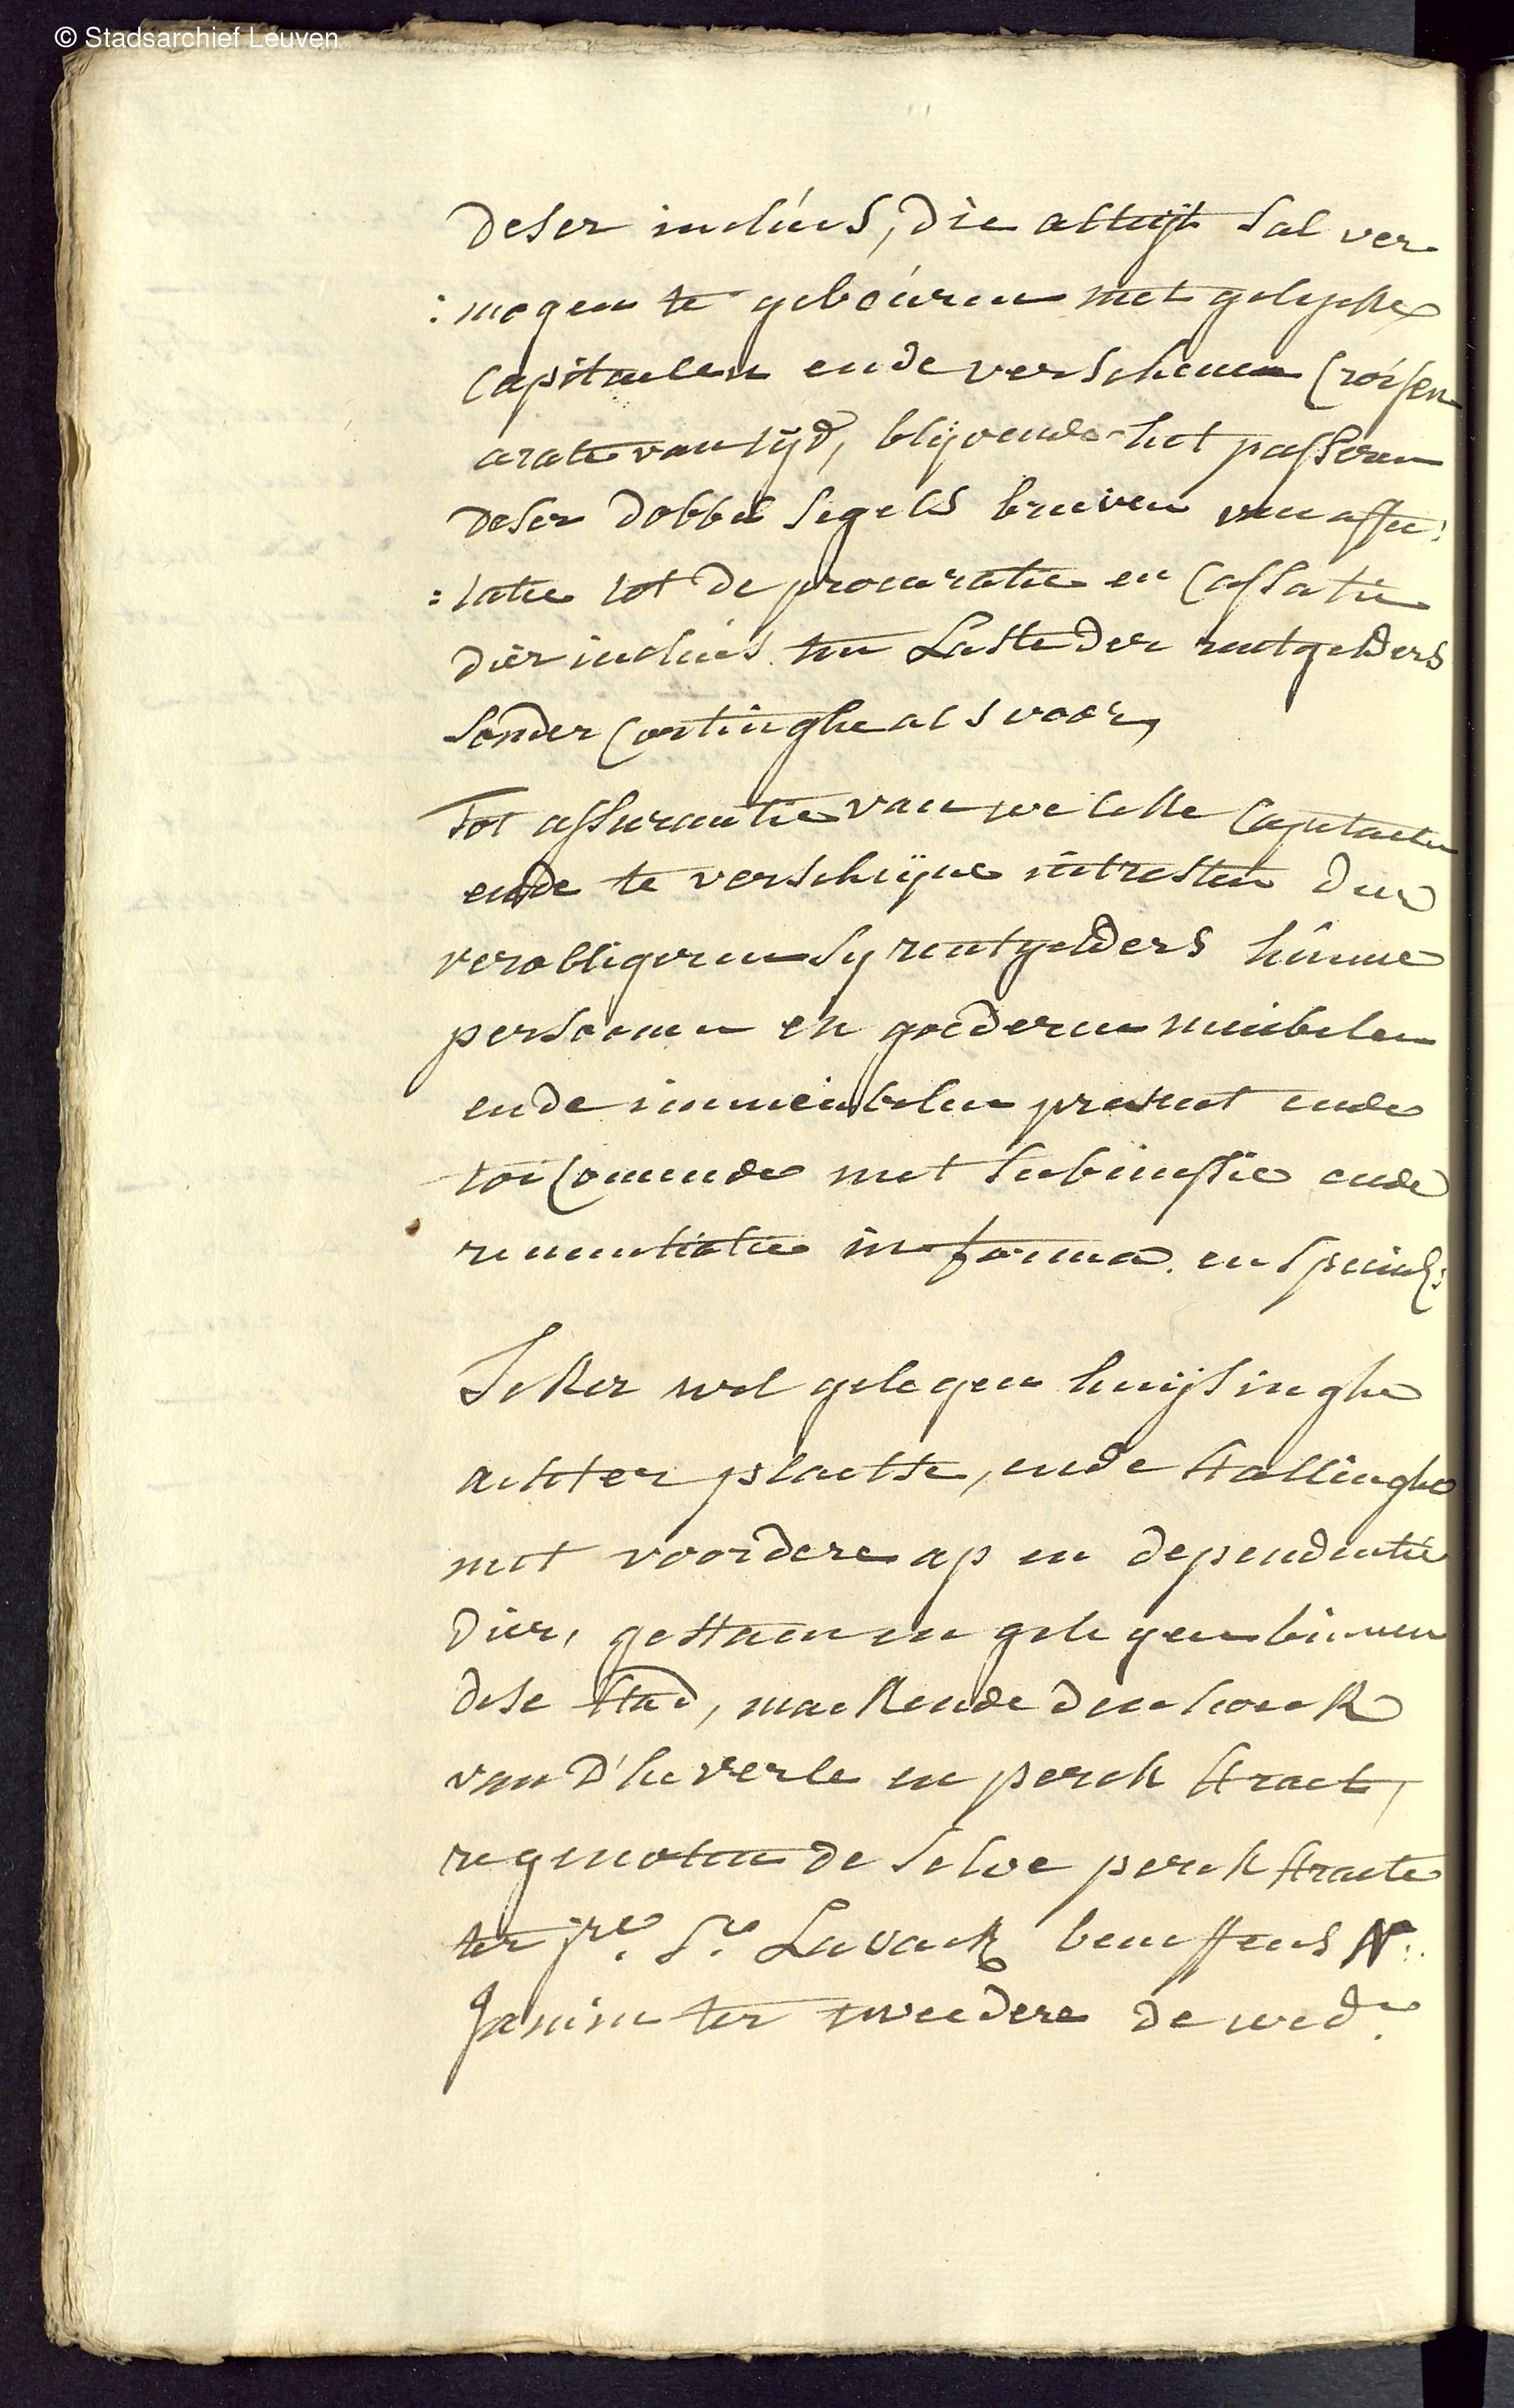 © Stadsarchief Leuven
deser inclúús, die altijt sal ver
:mogen te geboúren met gelycke
Capitaelen ende verschenen Croisen
arate van tijd, blijvende het passeren
deser dobbel segels brieven van affec:
:tatie tot de procuratie en Cassatie
dier inclúús ten Laste der rentgelders
sonder Cortinghe als voor,
Tot assurantie van welcke Capitaelen
ende te verschijne intresten der
verobligeren sy rentgelders hûnne
persoonen en goederen meubelen
ende immeubelen present ende
toeComende met submissie ende
renuntiatie in forma. en
Seker wel gelegen huijsinghe
achter plaetse, ende stallinghe
met voordere ap en dependentie
dier, gestaen en gelegen binnen
dese stad, maekende den hoeck
van D'heverle en perck straet,
regenoten de selve perck straete
ter jre. Sr. Lavack beneffens N:
Janin ter tweedere de wede.